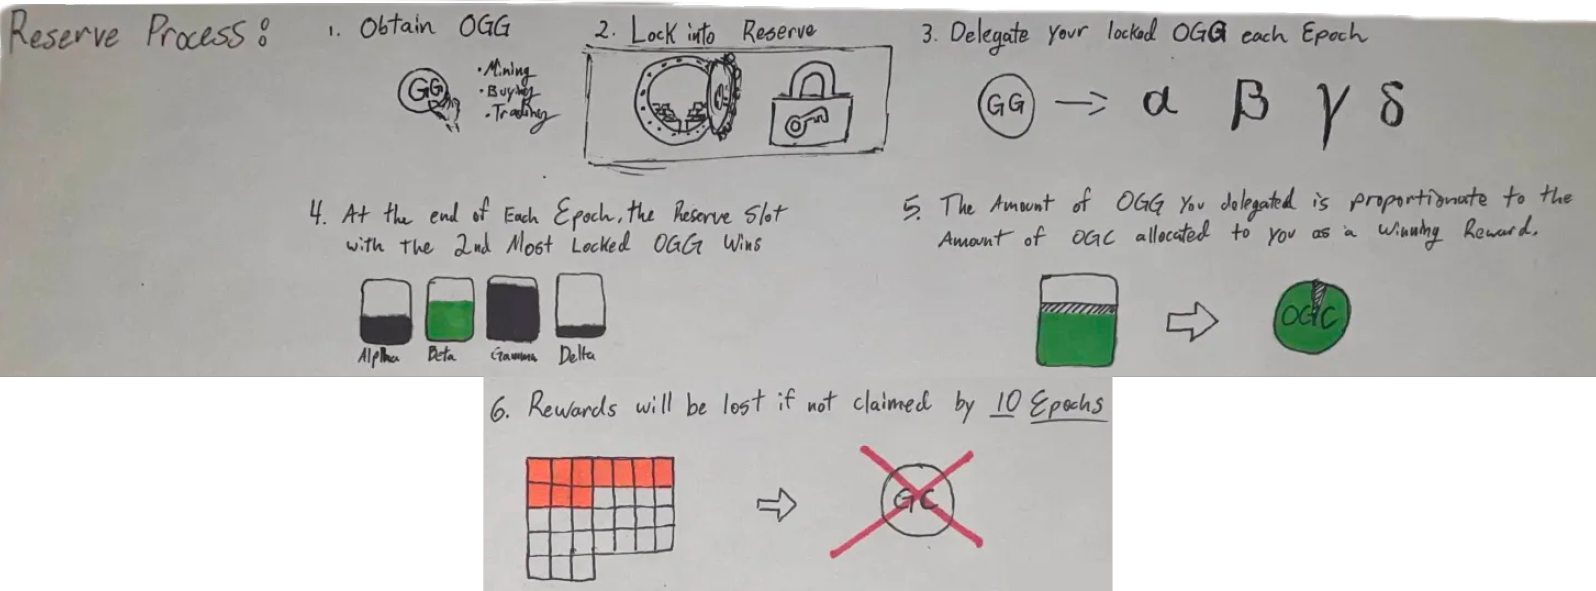 Reserve Process:
1. Obtain OGG
GG
• Mining
• Buying
• Trading
2. Lock into Reserve
3. Delegate your locked OGG each Epoch
GG → α β γ δ
4. At the end of Each Epoch, the Reserve Slot
with the 2nd Most Locked OGG Wins
Alpha Beta Gamma Delta
5. The Amount of OGG You delegated is proportionate to the
Amount of OGC allocated to you as a Winning Reward.
OGC
6. Rewards will be lost if not claimed by 10 Epochs
GC